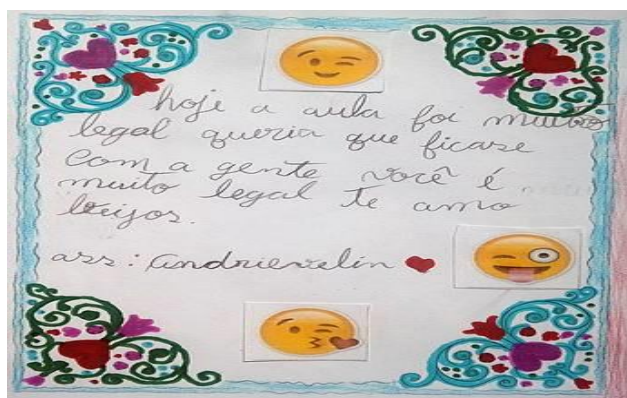 hoje a aula foi muito
legal queria que ficase
com a gente você é
muito legal te amo
beijos.
ass: Andrievelin